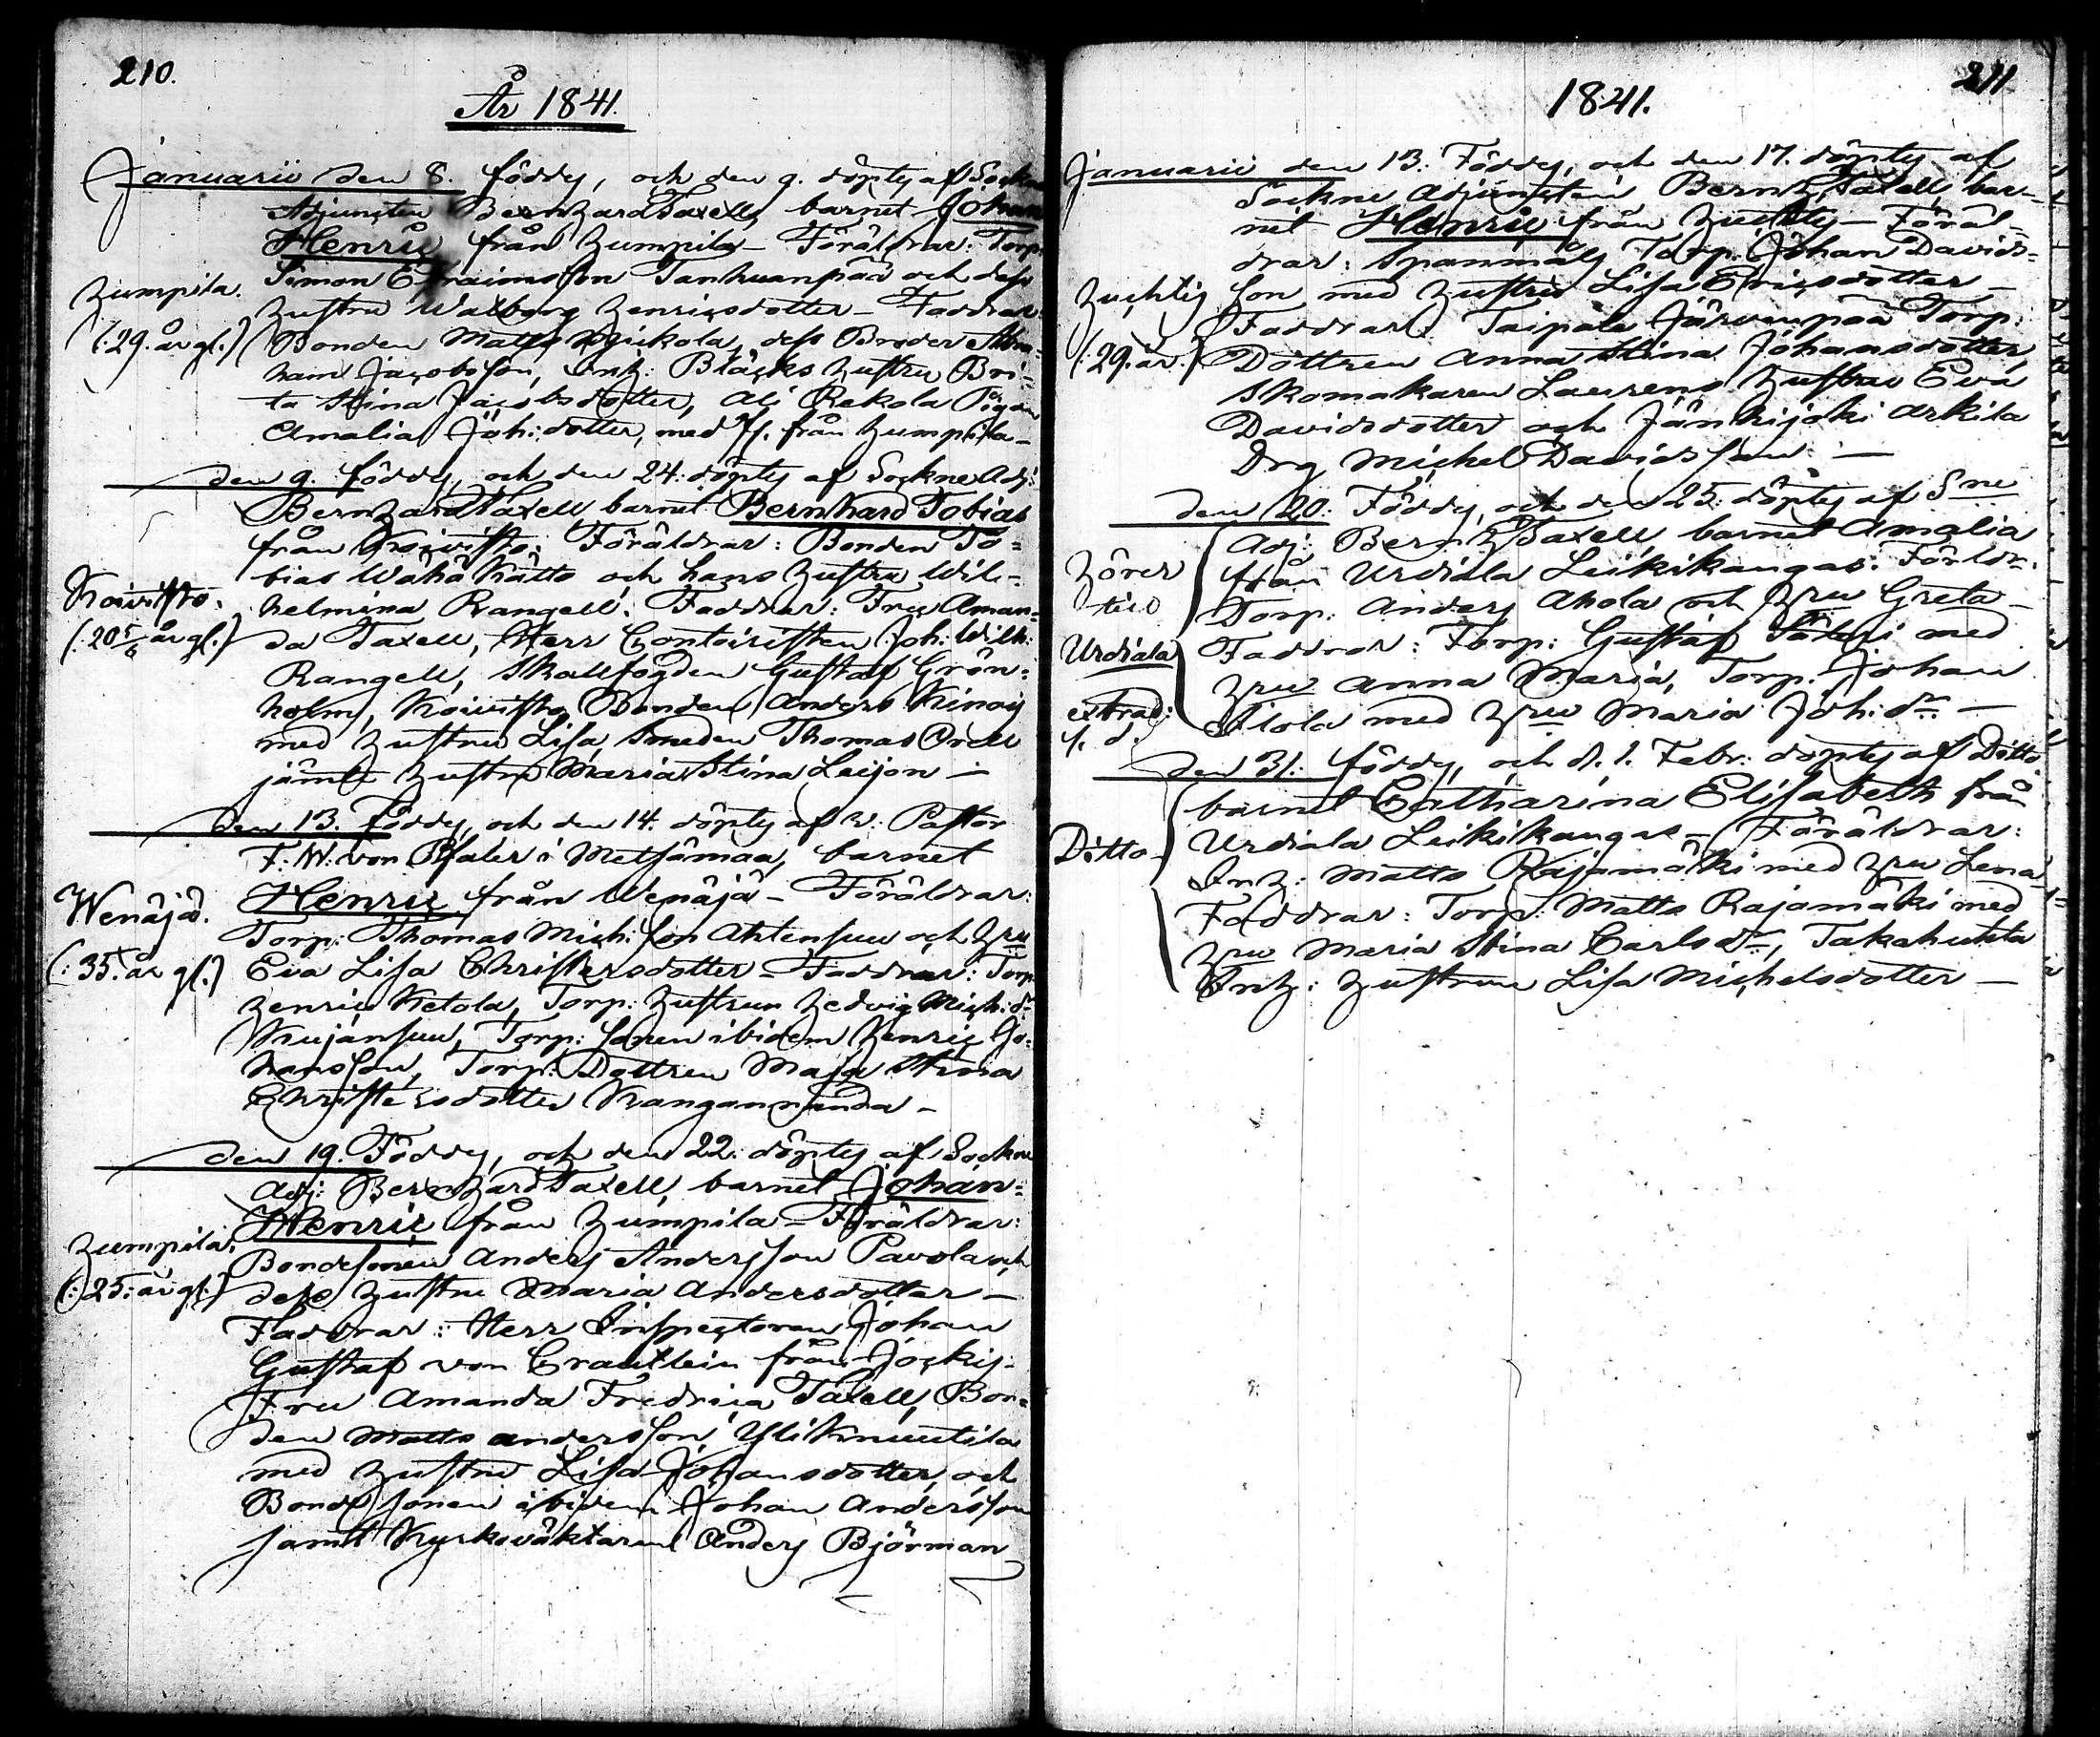 210.
År 1841.
Januarii den 8. föddes, och den 9. döptes af Sockne
Adjuncten Bernhard Taxell, barnet Johan
Henric från Humpila – Föräldrar: Torp.
Simon Efraimsson Tanhuanpää och dess
Humpila. hustru Walborg Henricsdotter – Faddrar
(:29. år gl.) Bonden Matts Nickola, dess Broder Abra=
ham Jacobsson, Inh: Bläcks hustru Bri=
ta Stina Jacobsdotter, Ali Rekola Pigan
Amalia Joh:dotter, med fl. från Humpila –
den 9. föddes, och den 24. döptes af Sockne Adj:
Bernhard Taxell barnet Bernhard Tobias
från Koivisto. Föräldrar: Bonden To=
bias Wähä Kättö och hans hustru Wil=
Koivisto. helmina Rangell. Faddrar: Fru Aman=
(:20 5/6 år gl.) da Taxell, Herr Contoiristen Joh: Wilh:
Rangell, Skallfogden Gustaf Grön=
holm, Koivisto Bonden Anders
med hustru Lisa, Smeden Thomas
jämte hustru Maria Stina Leijon –
den 13. föddes, och den 14. döptes af v. Pastor
F. W. von Pfaler i Metsämaa, barnet
Wenäjä. Henric från Wenäjä – Föräldrar:
Torp: Thomas Mich:son Ahtensuu och Hru
(:35. år gl.) Eva Lisa Christersdotter – Faddrar: Torp.
Henric Ketola, Torp: hustrun Hedvig Mich:dr
Kujansuu, Torp: sonen ibidem Henric Jo=
hansson, Torp: Dottren Maja Stina
Christersdotter Kangannanda –
den 19. Föddes, och den 22. döptes af Sockne
Adj: Bernhard Taxell, barnet Johan
Henric från Humpila – Föräldrar:
Humpila. Bondesonen Anders Andersson Pavola och
(:25. år gl:) dess hustru Maria Andersdotter –
Faddrar: Herr Inspectoren Johan
Gustaf von Crautlein från Jockis
Fru Amanda Fredrica Taxell, Bon=
den Matts Andersson Yli Knuutila
med hustru Lisa Johansdotter, och
Bondesonen ibidem Johan Andersson
samt Kyrkoväktaren Anders Björman
211
1841.
Januarii den 13. Föddes, och den 17. döptes af
Sockne Adjuncten Bernh. Taxell, bar=
net Henric från Huchtis – Föräl=
drar: Spannmåls Torp. Johan Davids=
Huchtis son med hustru Lisa Ericsdotter –
Faddrar: Taipale Järvenpää Torp.
(:29. år.) Dottren Anna Stina Johansdotter,
Skomakaren Laurens hustru Eva
Davidsdotter och Jänhijoki Arkila
Drg Michel Davidsson –
den 20. Föddes, och den 25. döptes af Sne
Adj: Bernh Taxell barnet Amalia
Hörer från Urdiala Leikikangas. Föräldr:
till Torp: Anders Ahola och Hru Greta –
Urdiala Faddrar: Torp: Gustaf med
Hru Anna Maria, Torp. Johan
extrad: Alola med Hru Maria Joh:dr –
den 31. föddes, och d. 1. Febr: döptes af Ditto
barnet Catharina Elisabeth från
Ditto – Urdiala Leikikangas – Föräldrar:
Inh: Matts Rajamäki med Hru Lena
Faddrar: Torp: Matts Rajamäki med
Hru Maria Stina Carlsdr, Takahuhta
Inh: hustrun Lisa Michelsdotter –